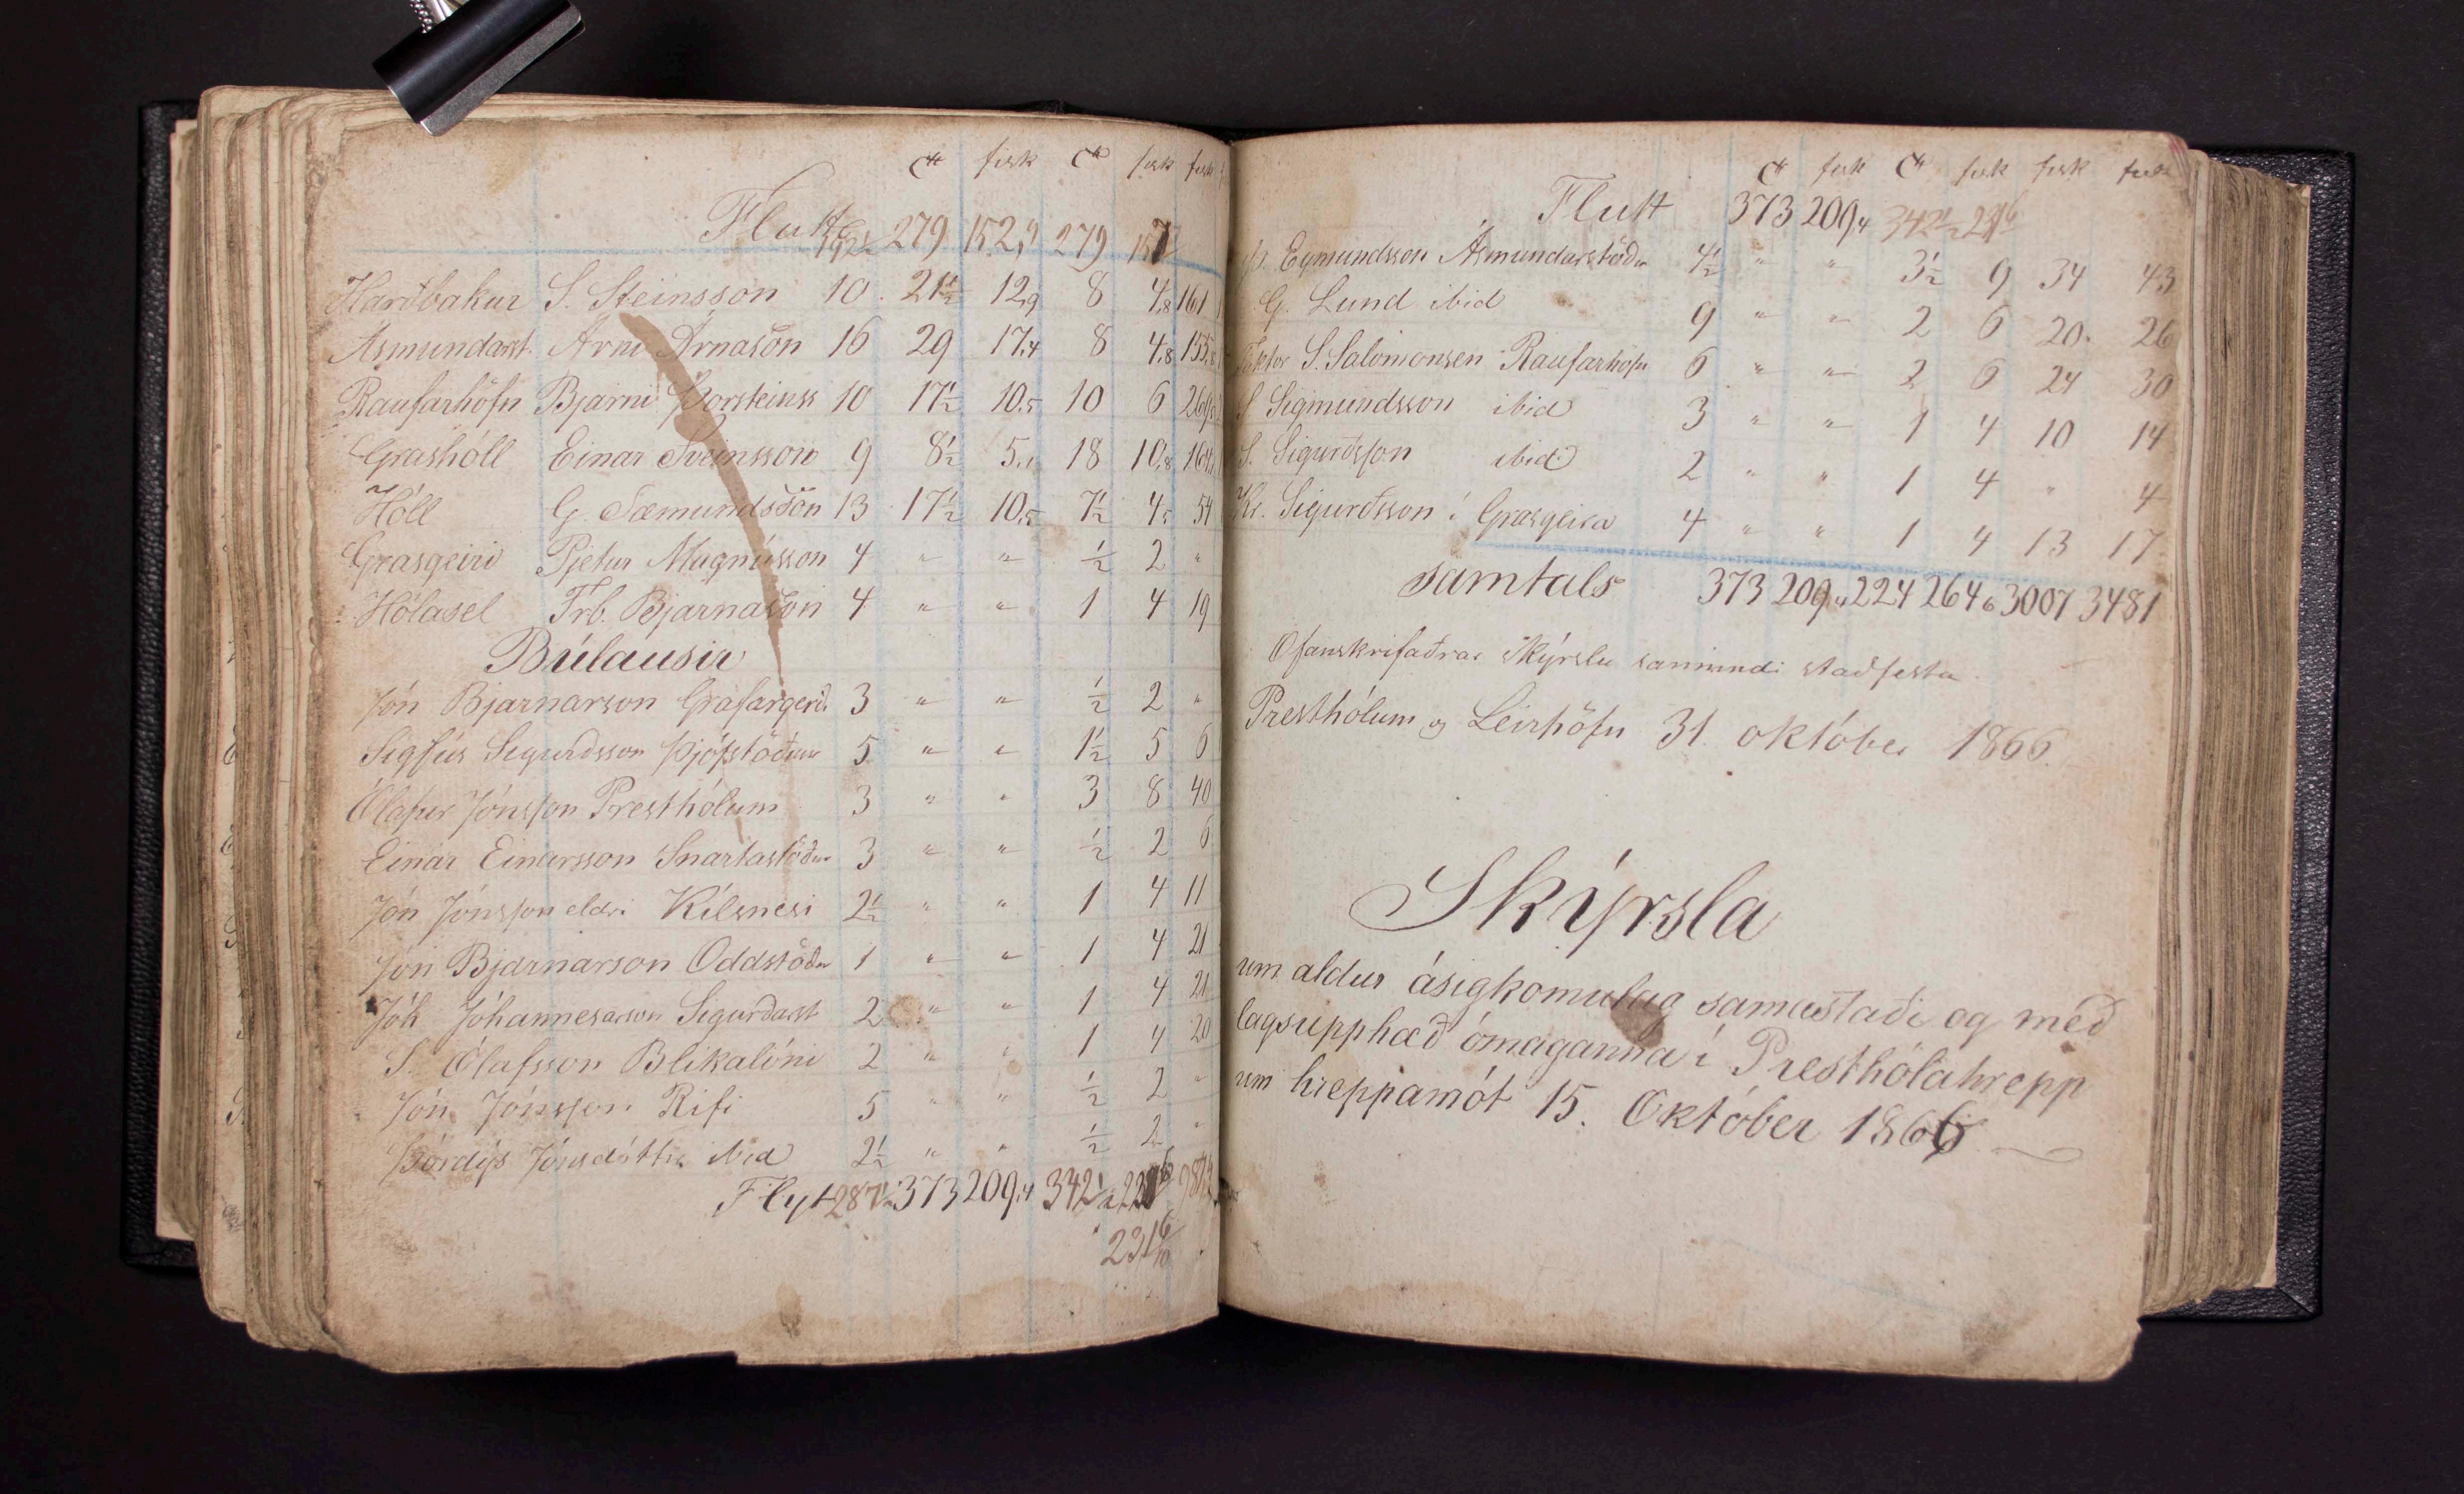 Ctt fisk Ctt fisk fisk
Flutt 192½ 279 152,9 279
Harðbakur S. Steinsson 10 21½ 12,9 8 4,8 161
Ásmundarst. Árni Árnason 16 29 17,4 8 4,8 155,8
Raufarhöfn Bjarni Þorsteinss 10 17½ 10,5 10 6
Grashóll Einar Sveinsson 9 8½ 5,1 18 10,8
Hóll G. Sæmundsson 13 17½ 10,5 7½ 4,5 54
Grasgeiri Pjetur Magnússon 4 " " ½ 2 "
Hólasel Þrb. Bjarnason 4 " " 1 4 19
Búlausir
Jón Bjarnarson Grafargerði 3 " " ½ 2 "
Sigfús Sigurðsson Þjófstöðum 5 " " 1½ 5 6
Ólafur Jónsson Presthólum 3 " " 3 8 40
Einar Einarsson Snartastöðum 3 " " ½ 2 6
Jón Jónsson eldri Kílsnesi 2½ " " 1 4 11
Jón Bjarnarson Oddstöðum 1 " " 1 4 21
Jóh Jóhannesarson Sigurðarst 2 " " 1 4 21
S. Ólafsson Blikalóni 2 " " 1 4 20
Jón Jónsson Rifi 5 " " ½ 2 "
Þórdýs Jónsdóttir ibid 2½ " " ½ 2 "
Flyt 287½ 373 209,4 342½
231 6/10
Ctt fisk Ctt fisk fisk fisk
Flutt 373 209,4 342½ 231 6
Þ. Eymundsson Ásmundarstöðum 4½ " " 3½ 9 34 43
G. Lund ibid 9 " " 2 6 20 26
Faktor S. Salomonsen Raufarhöfn 6 " " 2 6 24 30
S Sigmundsson ibid 3 " " 1 4 10 14
S. Sigurðsson ibid 2 " " 1 4 " 4
Kr. Sigurðsson í Grasgeira 4 " " 1 4 13 17
Samtals 373 209,4 224 264,6 3007 3481
Ofanskrifaðrar skýrslu sannindi staðfesta
Presthólum og Leirhöfn 31. október 1866.
Skýrsla
um aldur ásigkomulag samastaði og með
lagsupphæð ómaganna í Presthólahrepp
um hreppamót 15. Október 1866